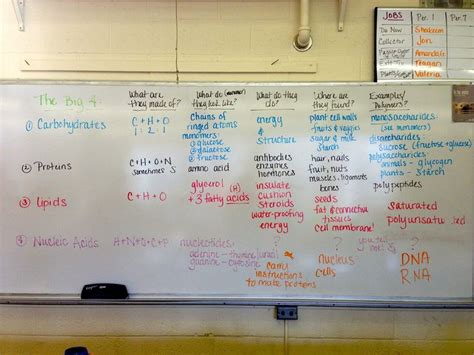 JOBS Per. 1 Per. 7
Do Now Shakeem
Collector Jon
Amanda
Teagan
Valeria
The Big 4
What are they made of?
What do (monomer) they look like?
What do they do?
Where are they found?
Examples/ Polymers?
① Carbohydrates
C+H+O
1:2:1
chains of
ringed atoms
monomers:
glucose
galactose
fructose
energy
&
structure
plant cell walls
fruits & veggies
sugar & milk
Starch
monosaccharides
(see monomers)
disaccharides:
sucrose (fructose + glucose)
polysaccharides:
animals - glycogen
plants - Starch
② Proteins
C+H+O+N
sometimes S
amino acid
antibodies
enzymes
hormones
hair, nails
fruit, nuts
muscles, ligaments
bones
polypeptides
③ Lipids
C+H+O
glycerol (H)
+ 3 fatty acids
insulate
cushion
steroids
water-proofing
energy
seeds
fat & connective
tissues
cell membrane
Saturated
polyunsaturated
④ Nucleic Acids
H+N+O+C+P
nucleotides:
adenine - thymine
guanine - cytosine
?
carry
instructions
to make proteins
?
nucleus
cells
you tell me! ?
DNA
RNA